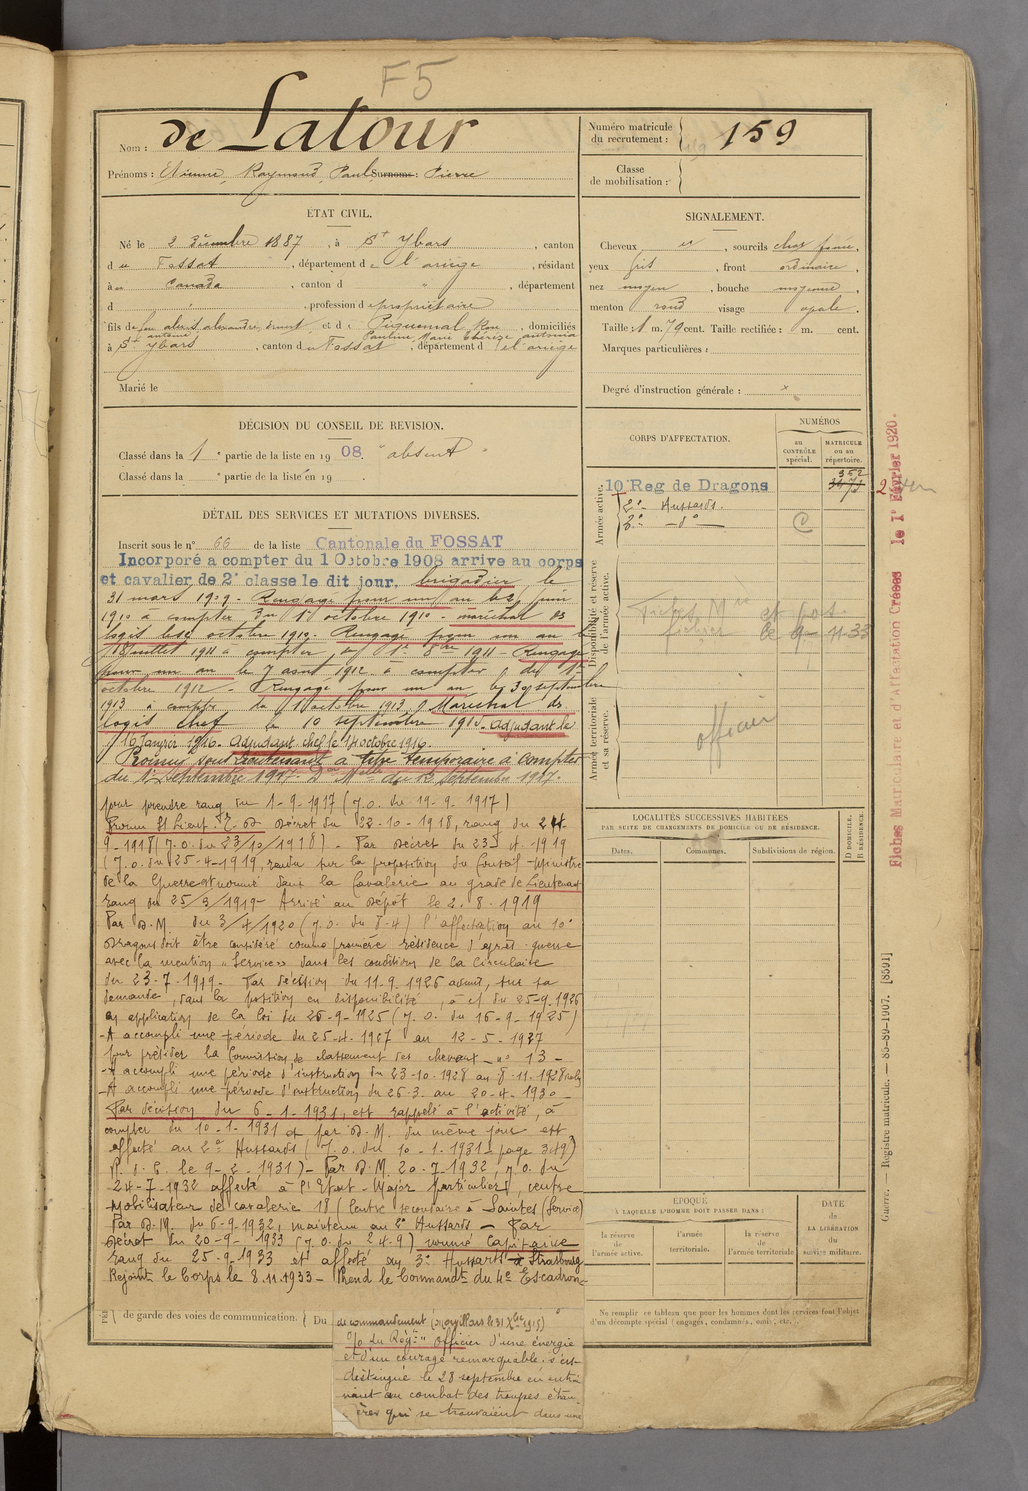 F5
Nom : de Latour
Prénoms : Etienne, Raymond, Paul Surnoms : Pierre
Numéro matricule du recrutement : 159
Classe de mobilisation :
ÉTAT CIVIL.
Né le 2 Décembre 1887, à St Ybars, canton
du Fossat, département de l'ariège, résidant
à au Canada, canton d " , département
d " , profession de propriétaire
fils de feu alexis, alexandre, ernest et de Piquemal Rose, domiciliés
antoine Pauline Marie Thérèze antonia
à St Ybars, canton du Fossat, département de l'ariège
Marié le
SIGNALEMENT.
Cheveux et , sourcils chat foncé,
yeux gris , front ordinaire,
nez moyen , bouche moyenne,
menton rond visage ovale.
Taille : 1 m. 79 cent. Taille rectifiée : m. cent.
Marques particulières :
Degré d'instruction générale : x
DÉCISION DU CONSEIL DE REVISION.
Classé dans la 1e partie de la liste en 1908. "absent"
Classé dans la e partie de la liste en 19
DÉTAIL DES SERVICES ET MUTATIONS DIVERSES.
Inscrit sous le n° 66 de la liste Cantonale du FOSSAT
Incorporé a compter du 1 Octobre 1908 arrive au corps
et cavalier de 2e classe le dit jour. brigadier le
31 mars 1909. Rengagé pour un an le 2 juin
1910 à compter du 1er octobre 1910 - maréchal des
logis le octobre 1910. Rengagé pour un an le
18 juillet 1911 à compter du 1er 8bre 1911 - Rengagé
pour un an le 7 août 1912 à compter du 1er
octobre 1912 - Rengagé pour un an le 30 septembre
1913 à compter du 1 octobre 1913. Maréchal des
logis chef le 10 septembre 1915. adjudant le
16 Janvier 1916. Adjudant chef le 14 octobre 1916.
Promu sous lieutenant à titre temporaire à compter
du 1er Septembre 1917. Don Mlle du 12 Septembre 1917.
pour prendre rang du 1-9-1917 (J.O. du 19-9-1917)
Promu St Lieut. T.D. Décret du 22-10-1918, rang du 24-
9-1918 (J.O. du 23/10/1918) - Par Décret du 23-4-1919
(J.O. du 25-4-1919, rendu sur la proposition du Conseil Ministre
de la Guerre est nommé dans la Cavalerie au grade de Lieutenant
rang du 25/3/1919 - Arrivé au Dépôt le 2.8.1919
Par D.M. du 3/4/1920 (J.O. du 8.4) l'affectation au 10e
Dragons doit être considéré comme première résidence d'après-guerre
avec la mention "Service" dans les conditions de la Circulaire
du 23-7-1919. Par décision du 11-9-1926 admis, sur sa
demande, dans la position en disponibilité, à c/ du 25-9-1926
en application de la loi du 26-9-1925 (J.O. du 16-9-1925)
-A accompli une période du 25-4-1927 au 12-5-1927
pour présider la Commission de classement des chevaux - n° 13 -
-A accompli une période d'instruction du 23-10-1928 au 8-11-1928
-A accompli une période d'instruction du 26-3 au 20-4-1930-
Par décision du 6-1-1931, est rappelé à l'activité, à
compter du 10-1-1931 et par D.M. du même jour est
affecté au 2e Hussards (J.O. du 10-1-1931 - page 349)
R.d.C. le 9-2-1931) - Par D.M. 20-7-1932, J.O. du
24-7-1932 affecté à l'Etat-Major particulier, centre
mobilisateur de cavalerie 18 (Centre secondaire à Saintes (Service)
Par D.M. du 6-9-1932, maintenu au 2e Hussards - Par
Décret du 20-9-1933 (J.O. du 24-9) nommé Capitaine
rang du 25-9-1933 et affecté au 3e Hussards à Strasbourg
Rejoint le Corps le 8.11.1933 - Prend le Commandt du 4e Escadron
de garde des voies de communication. Du
de commandement (Noyvillars le 31 Xbre 1915)
O/ du Régt "Officier d'une énergie
et d'un courage remarquable. s'est
distingué le 28 septembre en entrai-
nant au combat des troupes étran-
gères qui se trouvaient dans une
CORPS D'AFFECTATION.
NUMÉROS
au CONTRÔLE spécial.
MATRICULE ou au répertoire.
Armée active.
10 Reg de Dragons 352
2e Hussards.
3e - do -
Disponibilité et réserve de l'armée active.
Fiches Mle et pos.
le 9-11-33
Armée territoriale et sa réserve.
officier
LOCALITÉS SUCCESSIVES HABITÉES
PAR SUITE DE CHANGEMENTS DE DOMICILE OU DE RÉSIDENCE.
Dates. Communes. Subdivisions de région.
D DOMICILE.
R RÉSIDENCE.
ÉPOQUE
À LAQUELLE L'HOMME DOIT PASSER DANS :
la réserve de l'armée active.
l'armée territoriale.
la réserve de l'armée territoriale
DATE de LA LIBÉRATION du service militaire.
Ne remplir ce tableau que pour les hommes dont les services font l'objet
d'un décompte spécial (engagés, condamnés, omis, etc.)
Fiches Matriculaire et d'Affectation Créées le 1r Février 1920.
Guerre. — Registre matricule. — 85-89-1907. [8591]